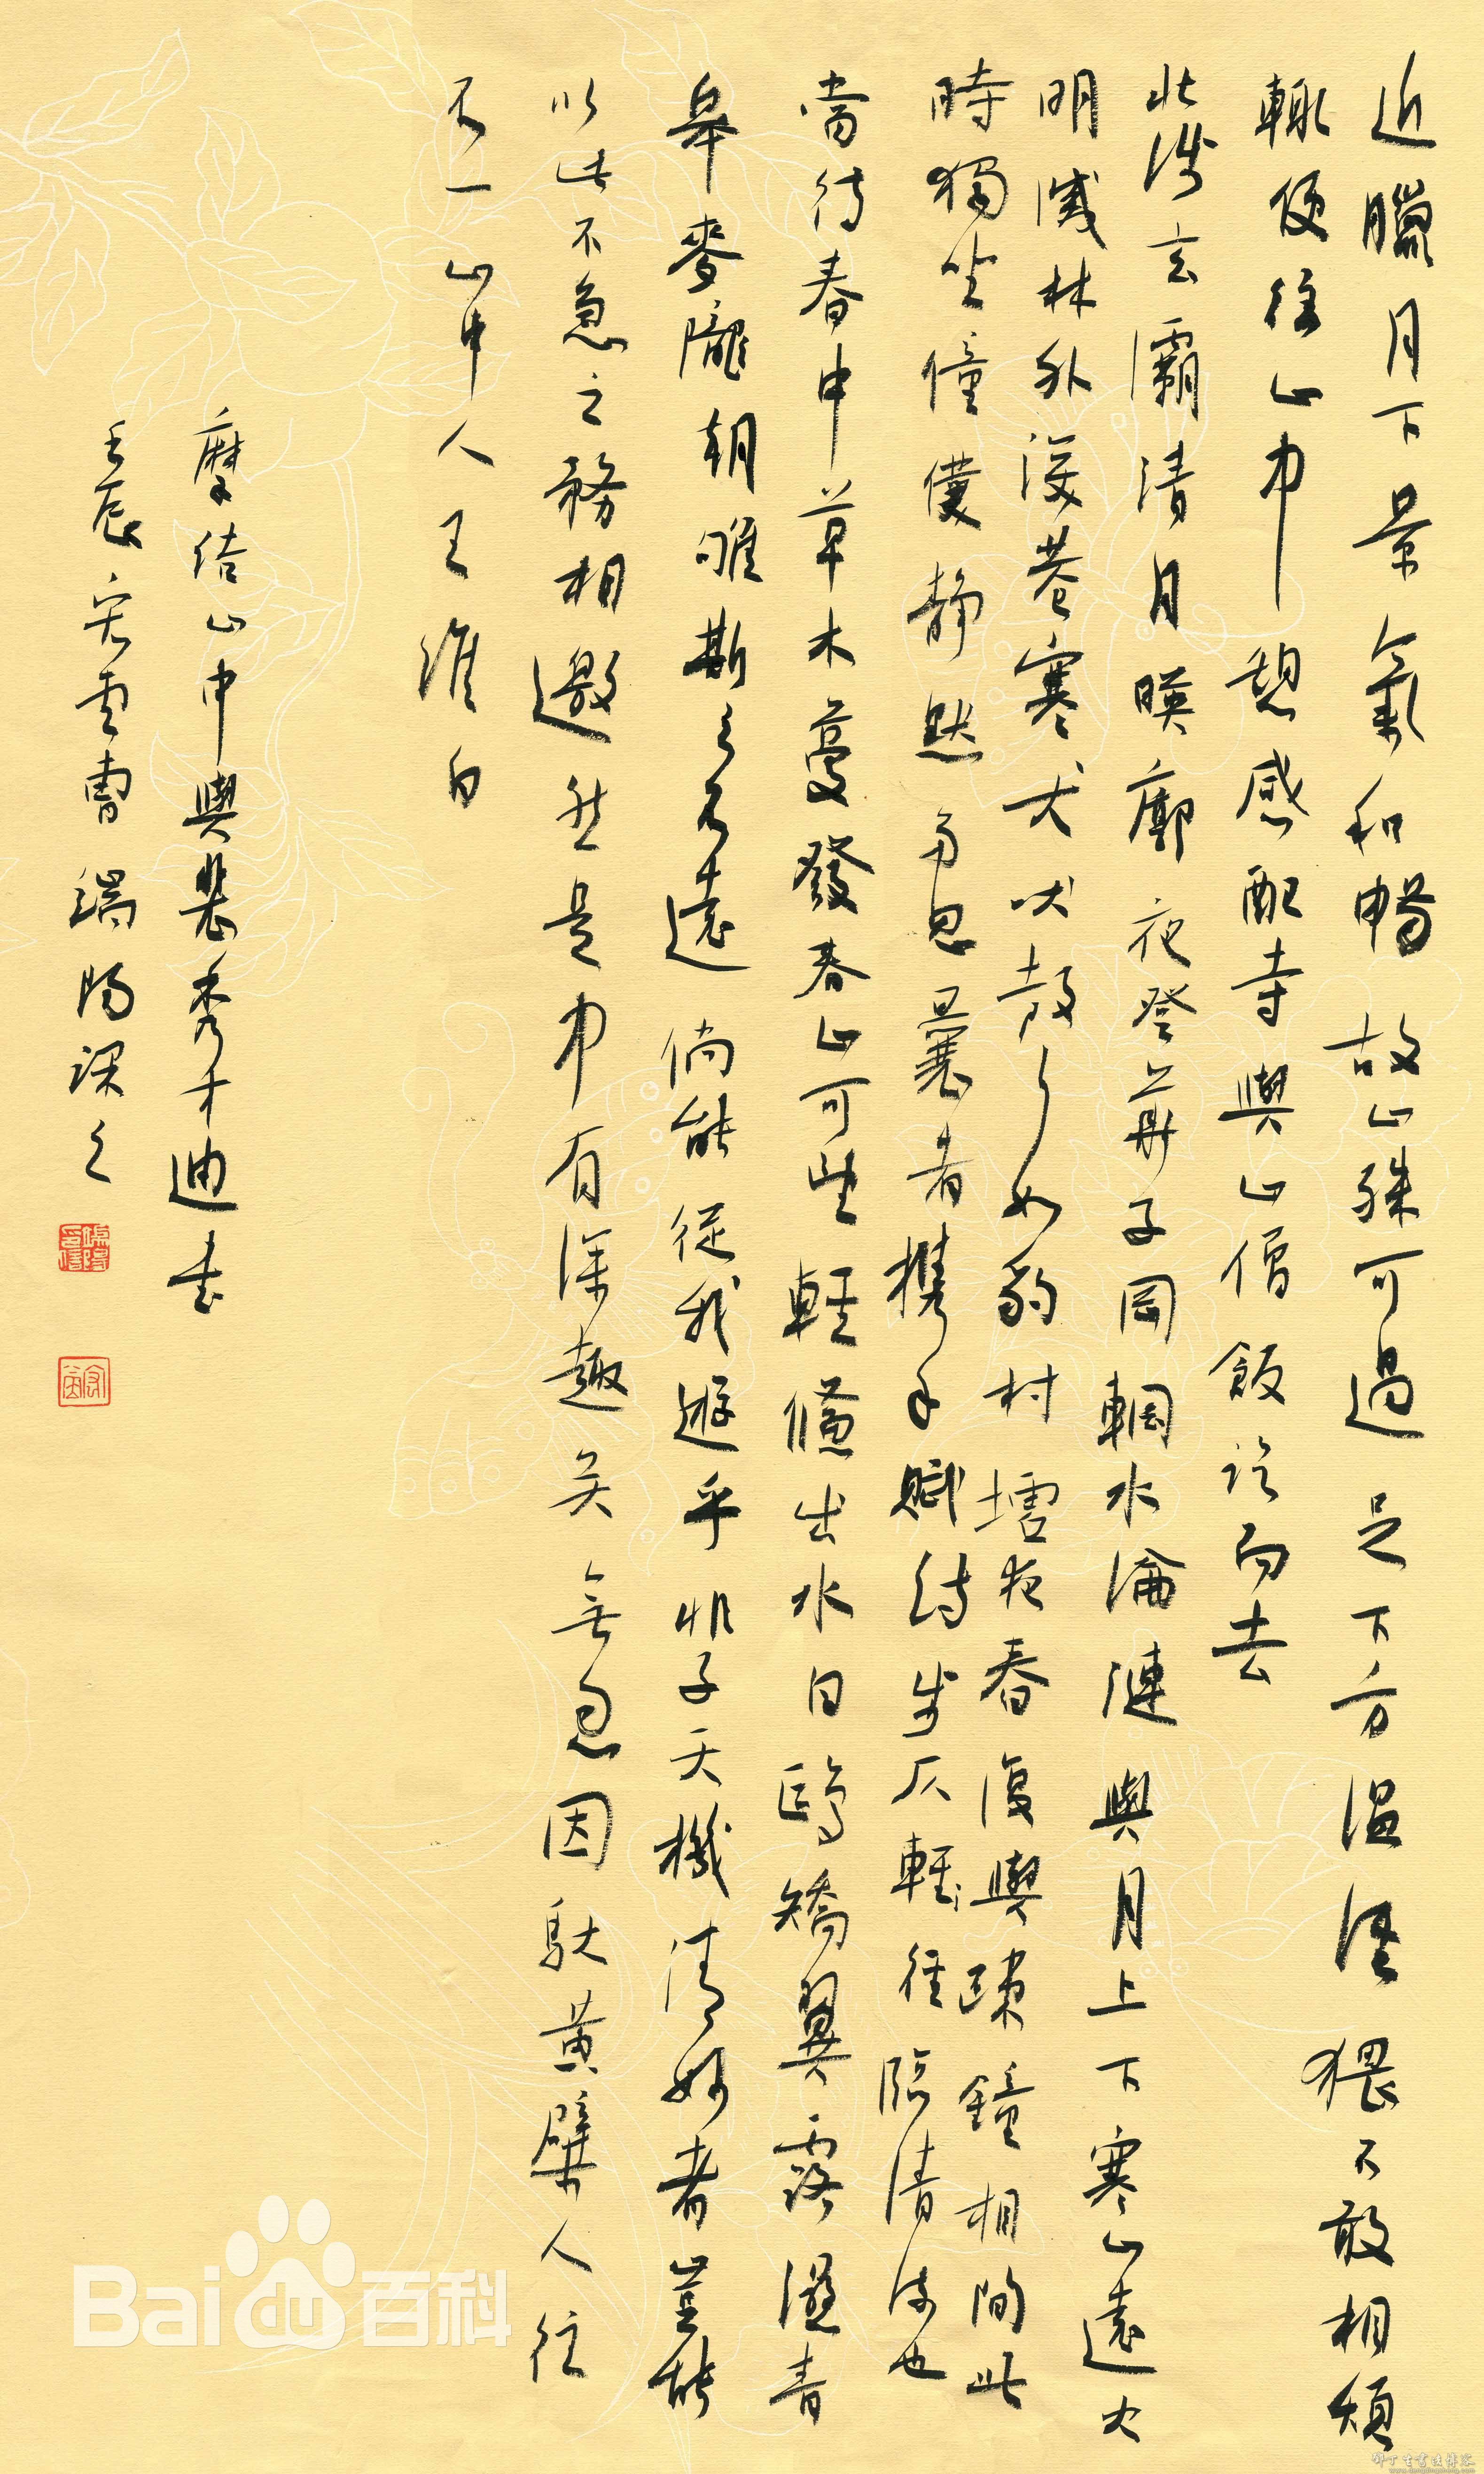 近臘月下景氣和暢故山殊可過足下方溫經猥不敢相煩
輒便往山中憩感配寺與山僧飯訖而去
北涉玄灞清月暎廓夜登華子岡輞水淪漣與月上下寒山遠火
明滅林外深巷寒犬吠聲如豹村墟夜舂復與疎鐘相間此
時獨坐僮僕靜默多思曩者攜手賦詩步仄輕徑臨清流也
當待春中草木蔓發春山可望輕鯈出水白鷗矯翼露濕青
皋麥隴朝雊斯之不遠倘能從我遊乎非子天機清妙者豈能
以此不急之務相邀然是中有深趣矣無忽因馱黃檗人往
不一山中人王維白
摩詰山中與裴秀才迪書
壬辰 雲 端陽課之
Baidu百科